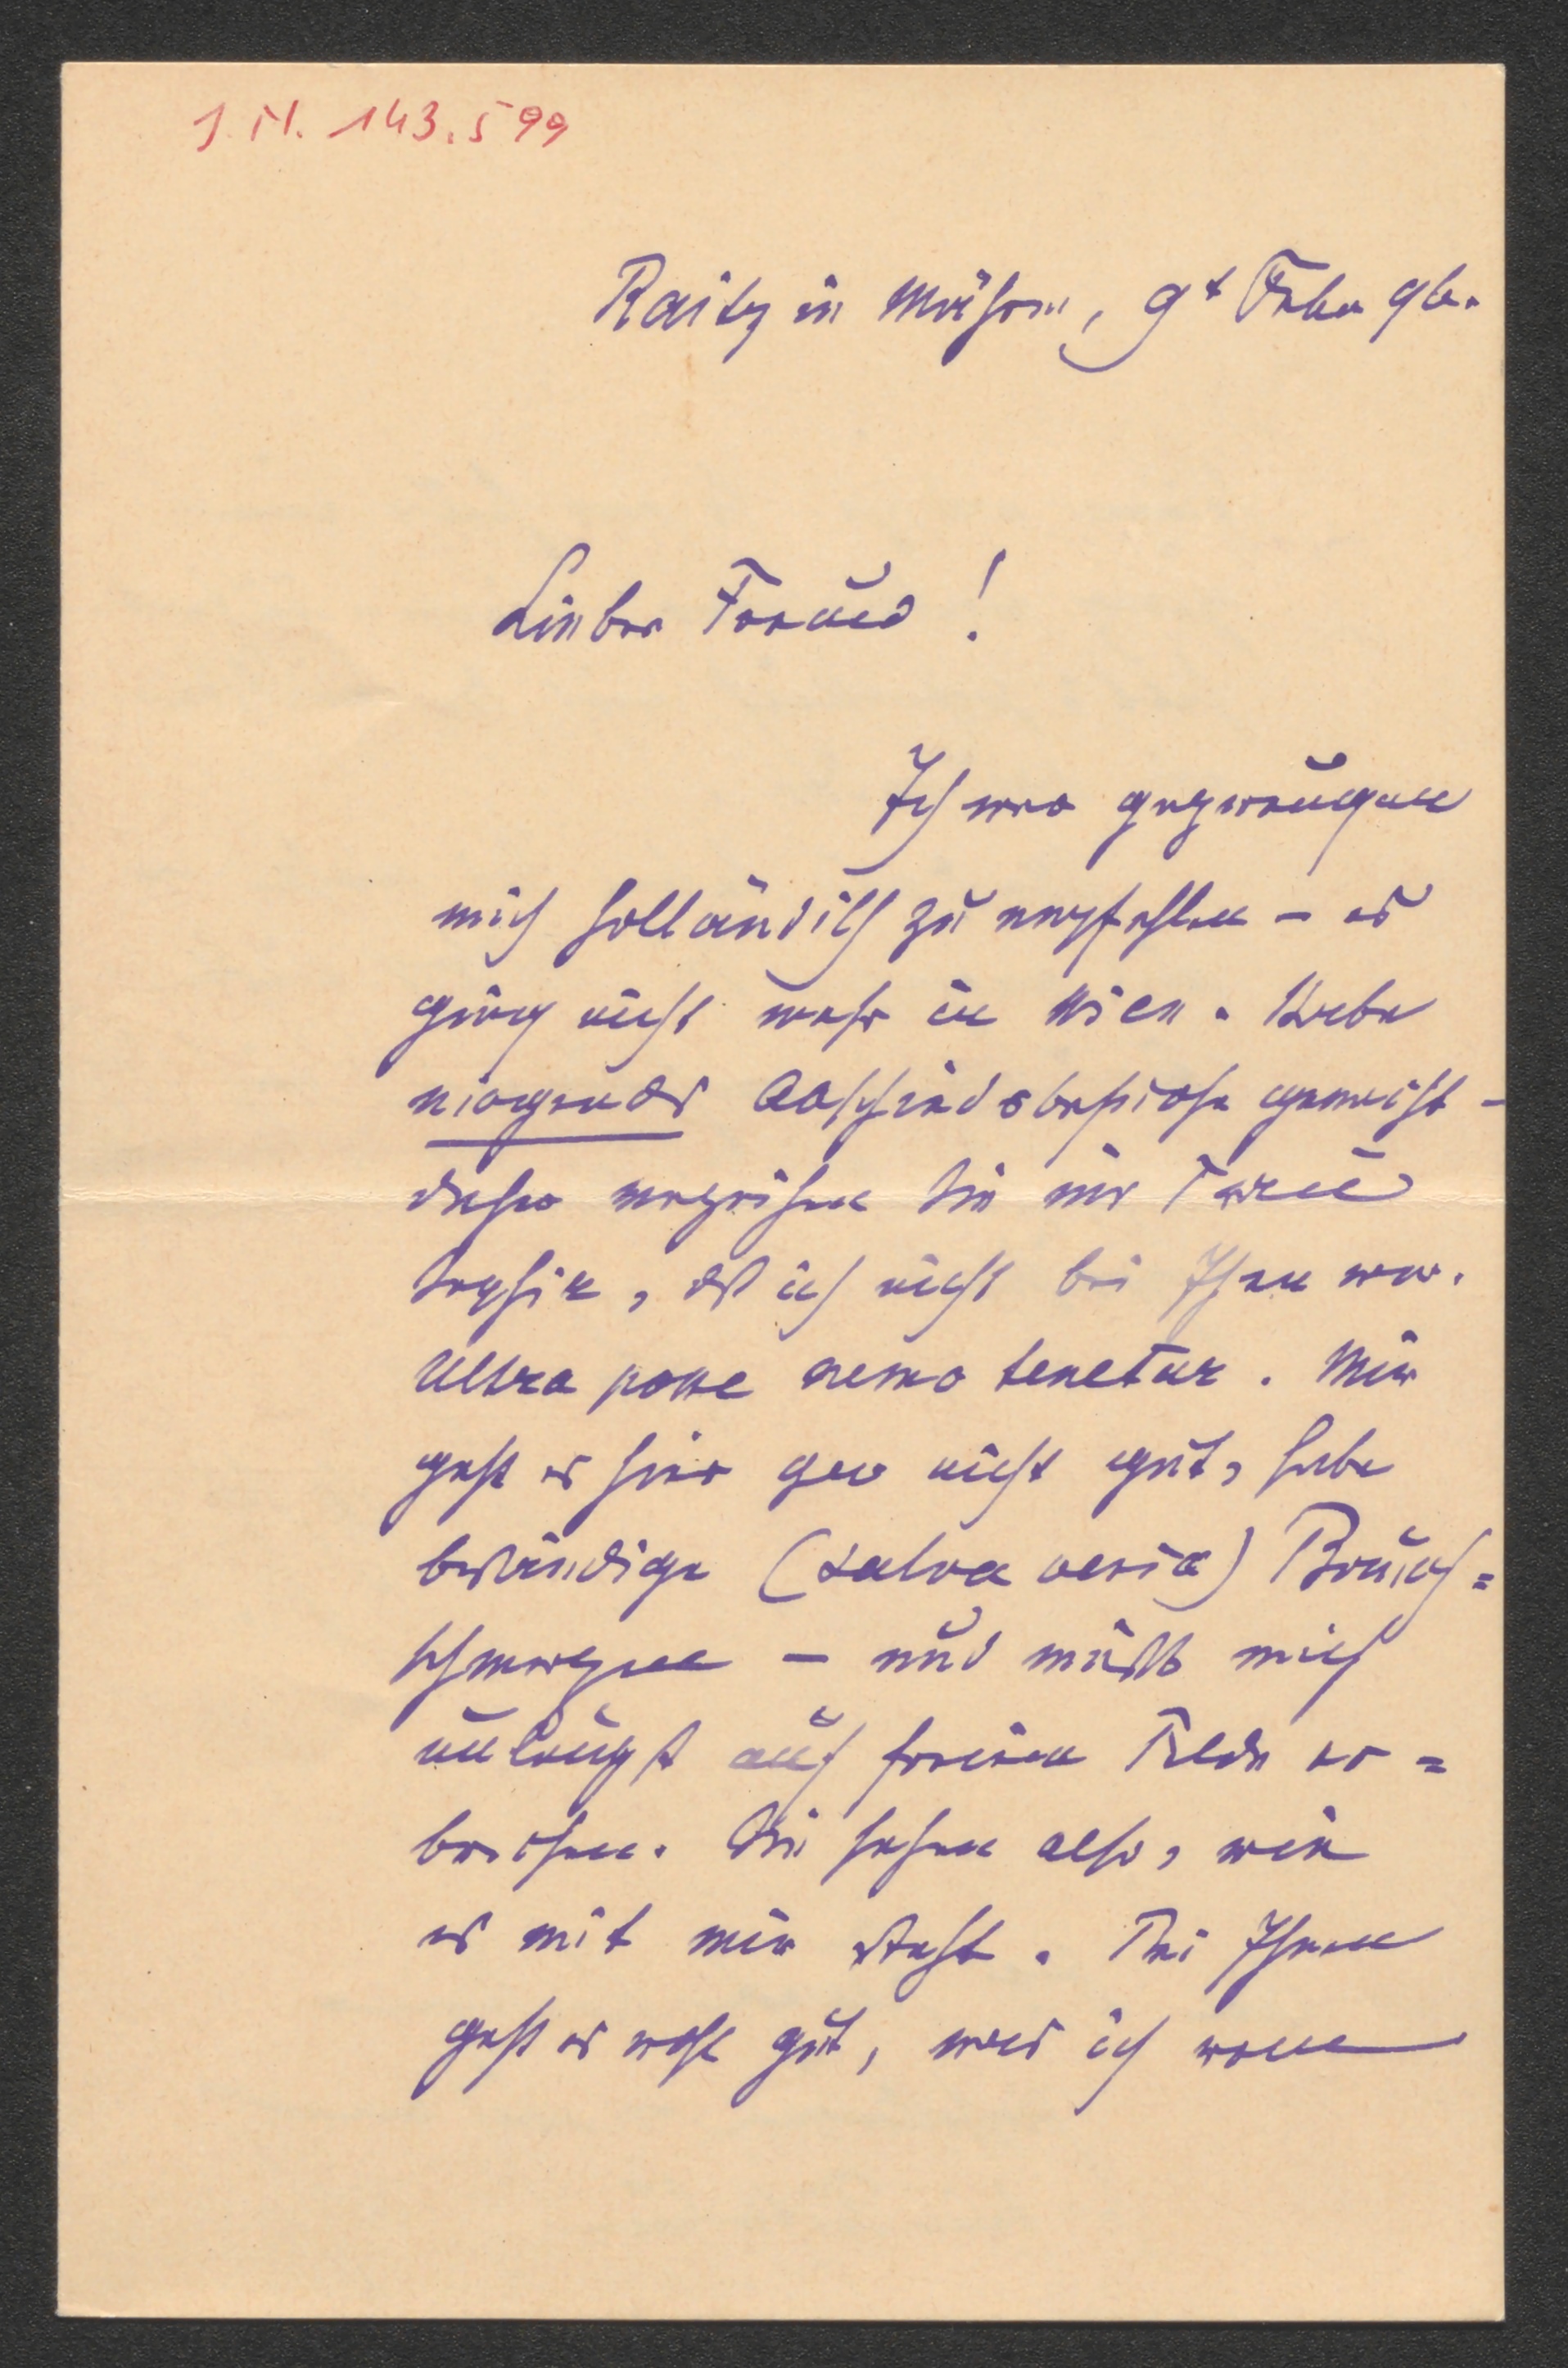 J.N. 143.599
Raitz in Mähren, 9t Febr 96.
Lieber Freund!
Ich war gezwungen
mich holländisch zu empfehlen – es
ging nicht mehr in Wien. Habe
nirgends Abschiedsbesuche gemacht –
daher verzeihen Sie mir Freund
, dß ich nicht bei Ihnen war.
Ultra posse nemo tenetur. Mir
geht es hier gar nicht gut, habe
beständige (salva venia) Bauch=
schmerzen – und mußte mich
unlängst auf freiem Felde er=
brechen. Sie sehen also, wie
es mit mir steht. Bei Ihnen
geht es wohl gut, was ich von